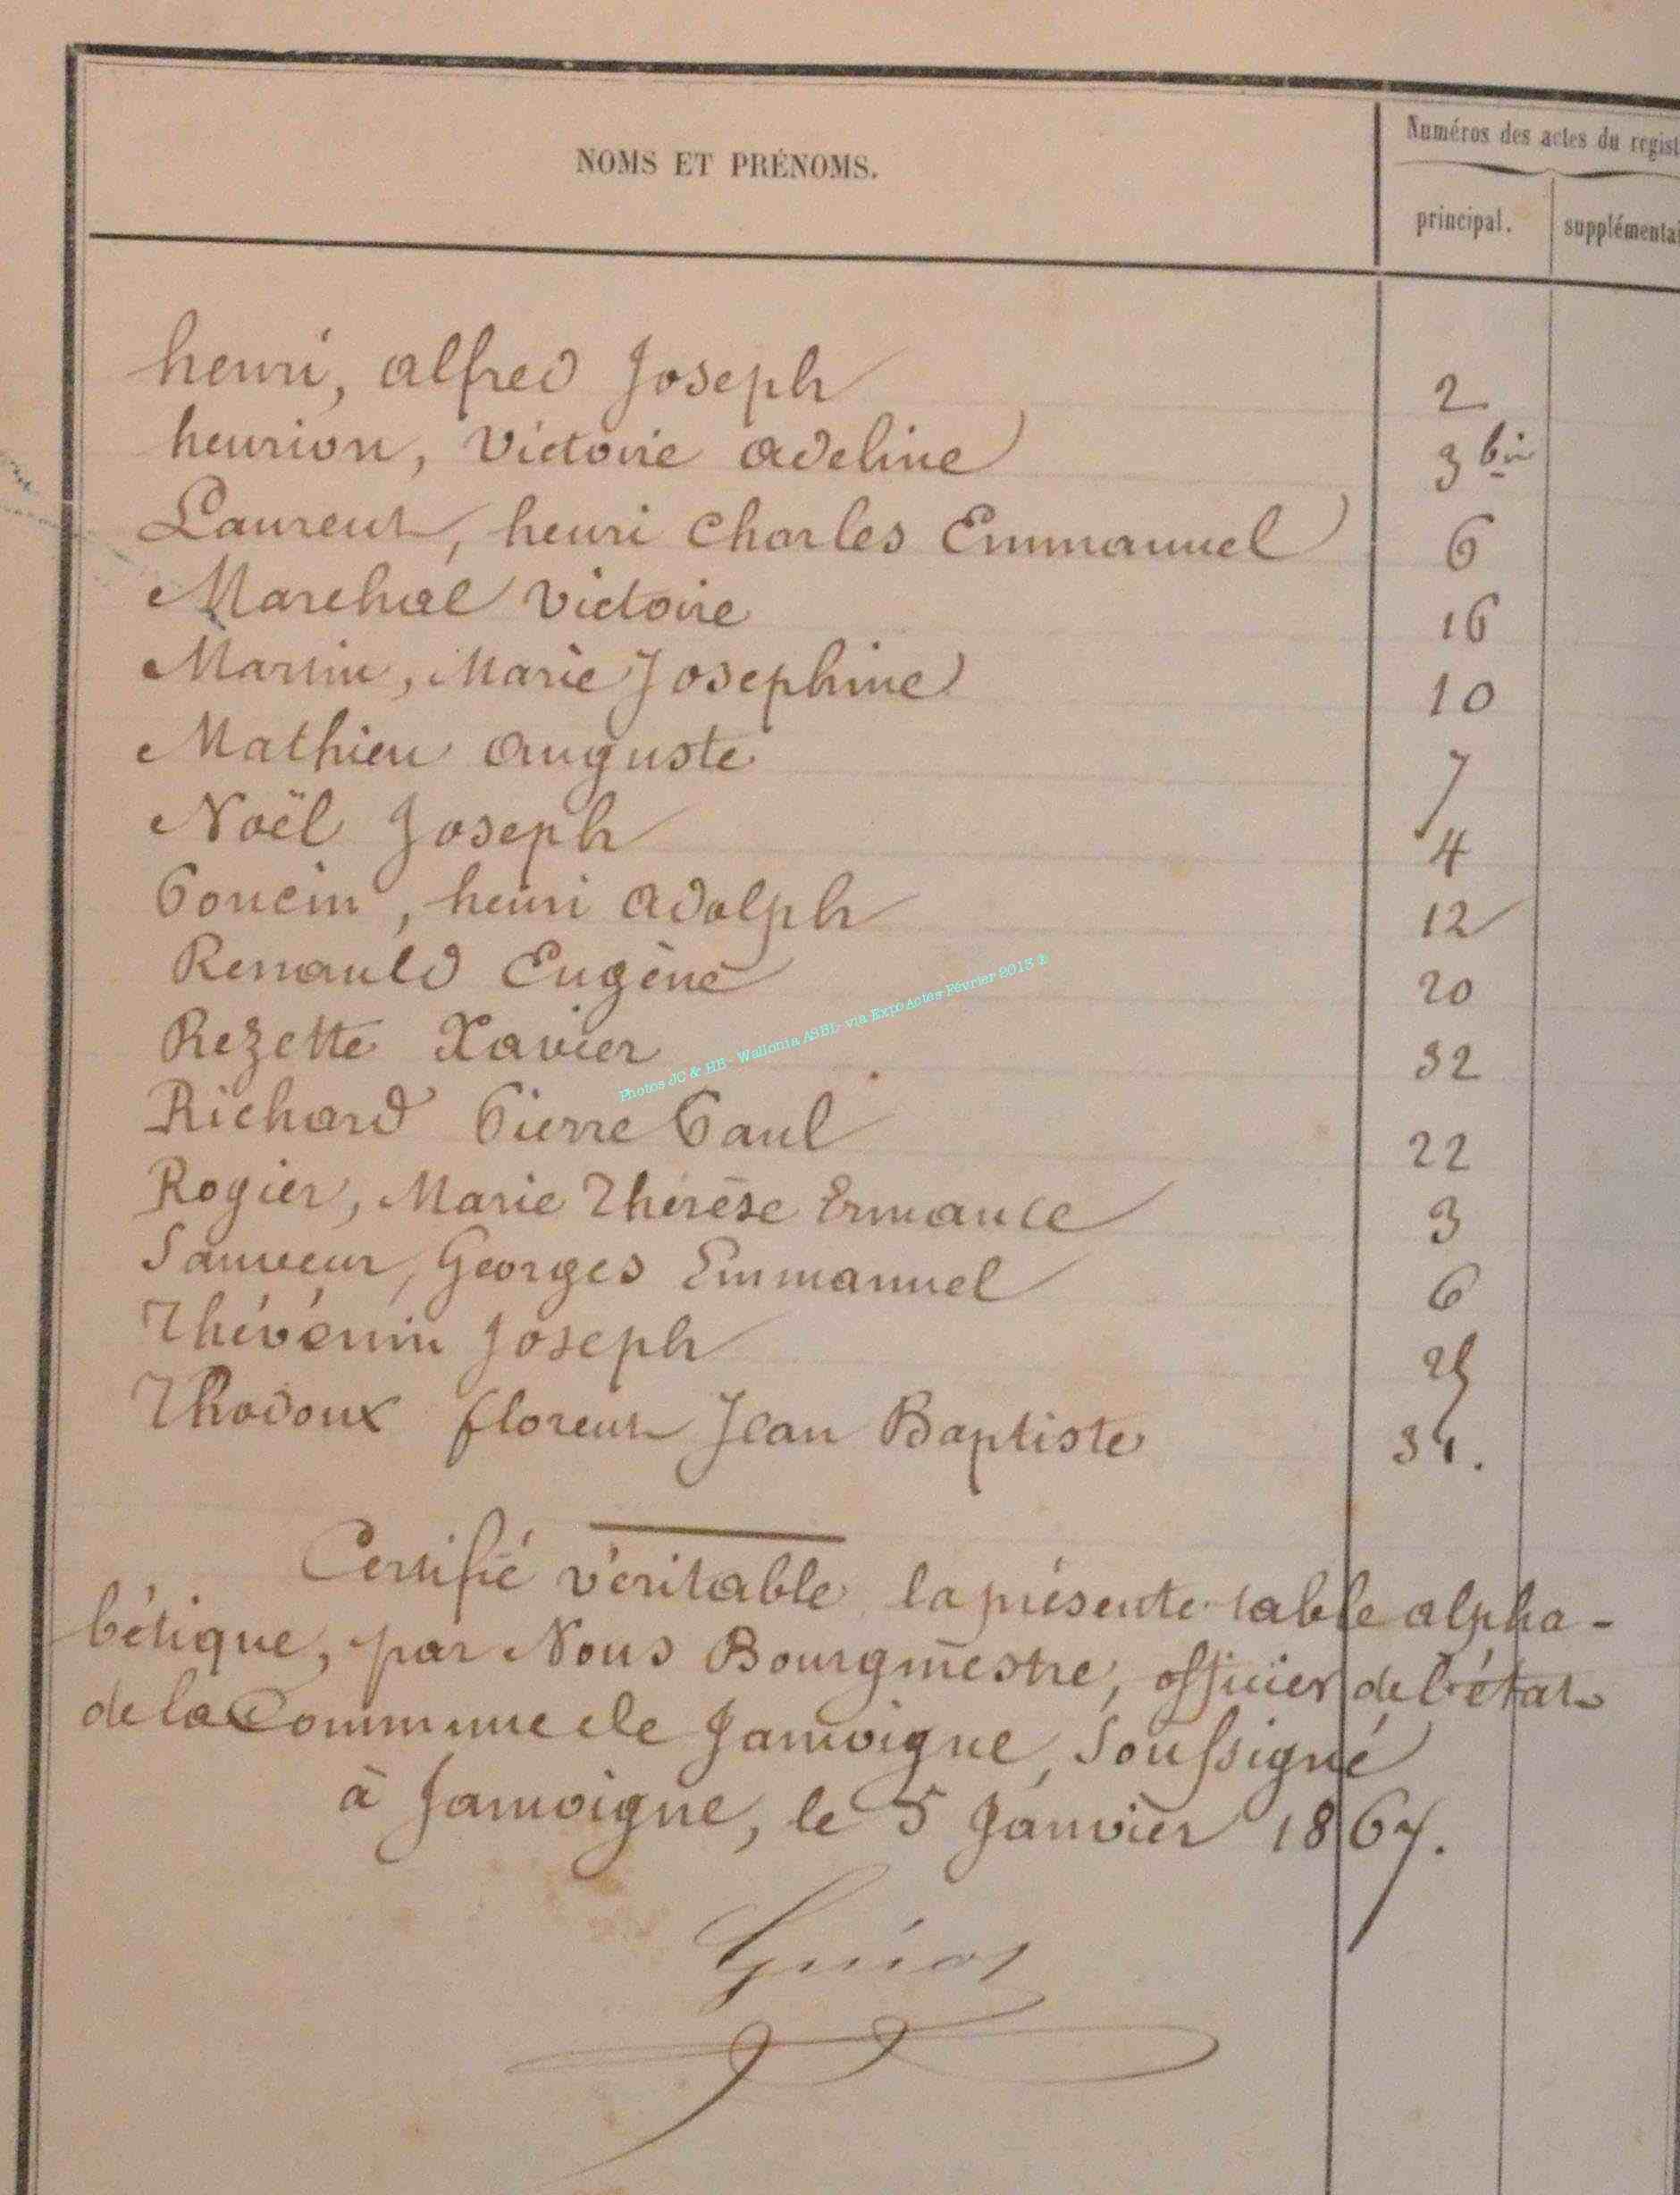 NOMS ET PRÉNOMS.
Numéros des actes du regist
principal. supplémentai
henri, alfred Joseph 2
henrion, Victoire adeline 3 bis
Laurent, henri Charles Emmanuel 6
Marchal Victoire 16
Martin, Marie Josephine 10
Mathieu auguste 7
Noël Joseph 4
Poncin, henri adolph 12
Renauld Eugène 20
Rezette Xavier 32
Richard Pierre Paul 22
Rogier, Marie Thérèse Ermance 3
Sauveur, Georges Emmanuel 6
Thévenin Joseph 25
Thodoux florent Jean Baptiste 34.
Certifié véritable la présente table alpha-
bétique, par Nous Bourgmestre, officier de l'état
de la Commune de Jamoigne, Soussigné
à Jamoigne, le 5 Janvier 1867.
Photos JC & HB - Wallonia ASBL- via ExpoActes-Février 2013